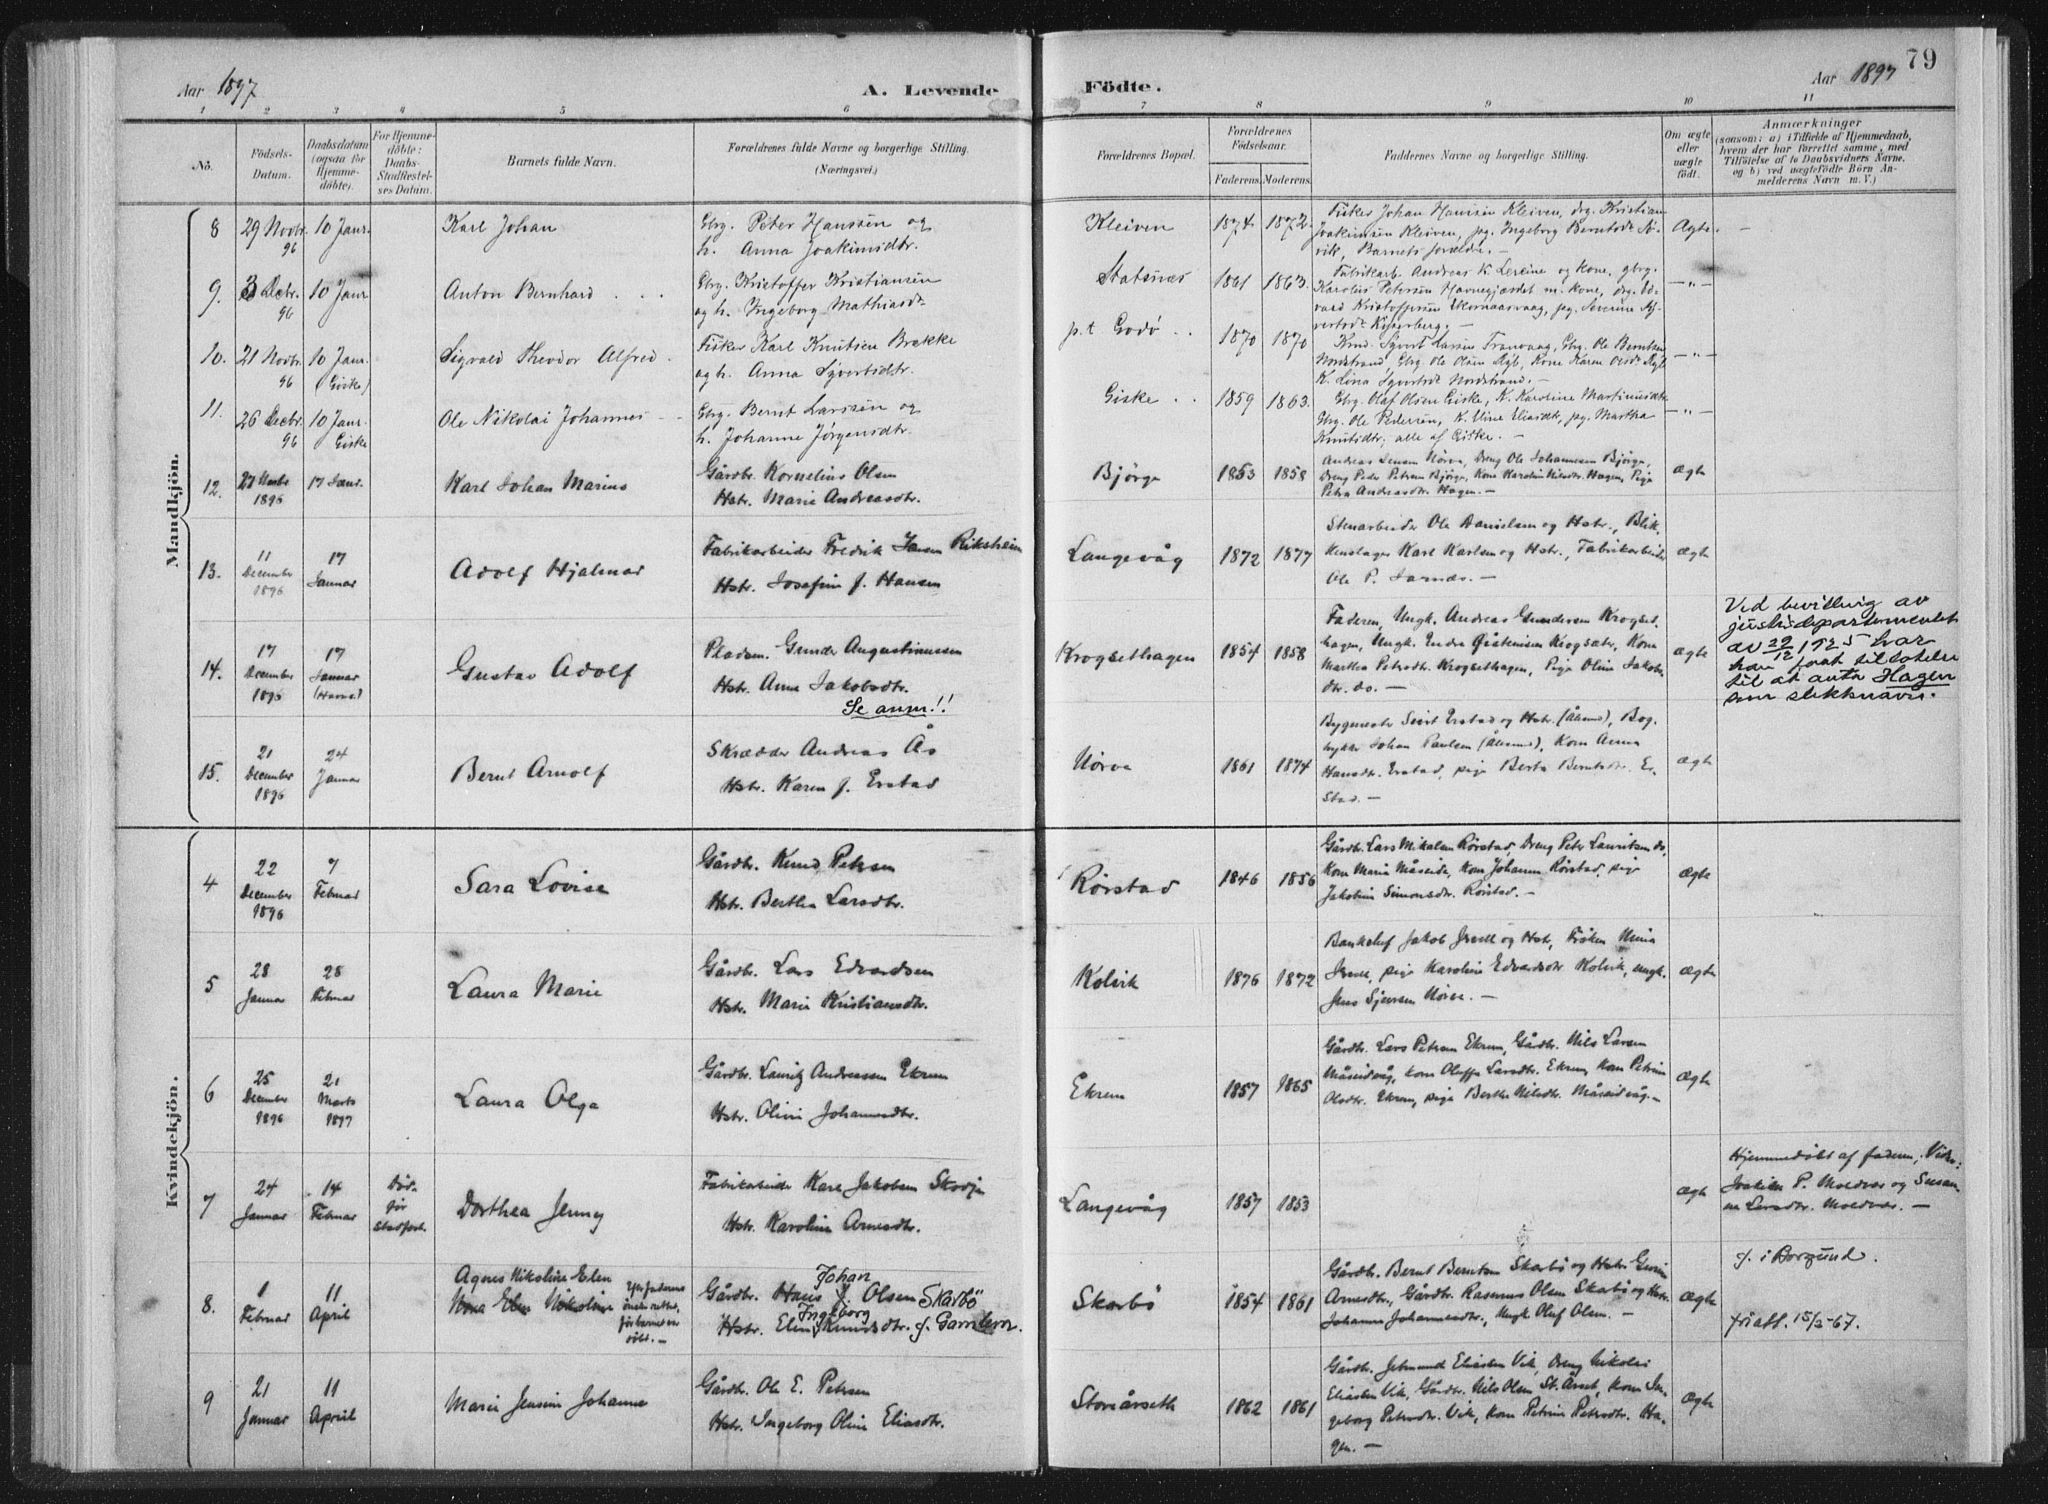 79
Aar 1897
A. Levende Födte.
Aar 1897
1 2 3 4 5 6 7 8 9 10 11
No.
Födsels-Datum.
Daabsdatum (ogsaa for Hjemmedöbte).
For Hjemmedöbte: Daabs-Stadfæstelses Datum.
Barnets fulde Navn.
Forældrenes fulde Navne og borgerlige Stilling. (Næringsvei.)
Forældrenes Bopæl.
Forældrenes Födselsaar.
Faderens. Moderens.
Faddernes Navne og borgerlige Stilling.
Om ægte eller uægte födt.
Anmærkninger
(saasom: a) i Tilfælde af Hjemmedaab, hvem der har forrettet samme, med Tilföielse af to Daabsvidners Navne. og b) ved uægtefödte Börn Anmelderens Navn m. V.)
Mandkjön.
8 29 Novbr. 96 10 Janr. Karl Johan
Gbrg. Peter Hanssen og
h. Anna Joakimsdtr.
Kleiven 1874. 1872.
Fisker Johan Hanssen Kleiven, drg. Kristian
Joakimsen Kleiven, pg. Ingeborg Berntsdt.
vik, Barnets forældre. —
Ægte. —
9. 3 Decbr. 96 10 Janr Anton Bernhard . . .
Gbrg. Kristoffer Kristiansen
og h. Ingeborg Mathiasdt
Statsnes 1861 1863.
Fabrikarb. Andreas K. og Kone, gbrg.
Karolus Petersen Havnegjærdet m. kone, drg.
Kristoffersen pg. Severine
— " —
10. 21 Novbr. 96 10 Janr (Giske) Sigvald Theodor Alfred.
Fisker Karl Knutsen Brække
og h. Anna Syvertsdtr.
p.t Godö . . 1870 1870
Syvert Larsen Gbrg. Ole Berntsen
Nordstrand, Gbrg. Ole Olsen Kone Karen Olsdt
K. Lina Syvertsdt Nordstrand. —
— " —
11. 26 Decbr. 96 10 Janr. Giske Ole Nikolai Johannes
Gbrg. Bernt Larssen og
h. Johanne Jørgensdtr.
Giske . . 1859 1863.
Gbrg. Olaf Olsen Giske, K. Karoline Martinusdt
Gbrg. Ole Pedersen, K. Eliasdt, pg. Martha
Knutsdtr, alle af Giske. —
— " —
12. 27 1896 17 Janr. Karl Johan Marius
Gårdbr. Kornelius Olsen
Hstr. Marie Andreasdtr.
Bjørge 1853 1858
Andreas Jensen Nörve, Dreng Ole Johannesen Bjørge,
Dreng Peder Petersen Bjørge, Kone Karolin Nilsdtr. Hagen, Pige
Petra Andreasdtr. Hagen. —
ægte
13. 11 December 1896 17 Januar Adolf Hjalmar
Fabrikarbeider Fredrik Jansen Riksheim
Hstr. Josefine f. Hansen
Langevåg 1872 1877
Stenarbeider Ole Danielsen og Hstr., Blik
kenslager Karl Karlsen og Hstr., Fabrikarbeider
Ole P.
ægte
14. 17 December 1896 17 Januar Gustav Adolf
Pladsm. Gunder Augustinussen
Hstr. Anne Jakobsdtr.
Se anm!!
Krogsethagen 1854 1858
Faderen, Ungk. Andreas Gundersen Krogset-
hagen, Ungk. Endre Øistensen Krogsæter, Kone
Martha Petersdtr. Krogsethagen, Pige Oline Jakobs
dtr. do. —
ægte
Ved bevilling av
justisdepartementet
av 22/12 1925 har
han faat tillatelse
til at anta Hagen
som slektsnavn.
15. 21 December 1896 24 Januar Bernt Arnolf
Skrædder Andreas Ås
Hstr. Karen f. Erstad
Nörve 1861 1874
Bygmester Erstad og Hstr. (Ålesund), Bog-
trykker Johan Paulsen (Ålesund), Kone Anna
Hansdtr. Erstad, pige Berta Berntsdtr. Er-
stad. —
ægte
Kvindekjön.
4 22 December 1896 7 Februar Sara Lovise
Gårdbr. Knud Petersen
Hstr. Berthe Larsdtr.
Rörstad 1846 1856
Gårdbr. Lars Mikalsen Rörstad, Dreng Peter Lauritsen do,
Kone Marie Måseide, Kone Johanne Rörstad, pige
Jakobine Simonsdtr. Rörstad. —
ægte
5 28 Januar 28 Februar Laura Marie
Gårdbr. Lars Edvardsen
Hstr. Marie Kristiansdtr.
Kolvik 1876 1872
Bankchef Jakob og Hstr, Frøken
pige Karoline Edvardsdtr Kolvik, Ungk.
Jens Nörve. —
ægte
6 25 December 1896 21 Marts 1897 Laura Olga
Gårdbr. Lauritz Andreassen Ekrem
Hstr. Olivie Johannesdtr.
Ekrem 1857 1865
Gårdbr. Lars Petersen Ekrem, Gårdbr. Nils Larsen
Måseidvåg, kone Oluffe Larsdtr. Ekrem, Kone Petrine
Olsdtr. Ekrem, pige Berthe Nilsdtr. Måseidvåg. —
ægte
7 24 Januar 14 Februar Død før stadfest. Dorthea Jenny
Fabrikarbeider Karl Jakobsen Skodje
Hstr. Karoline Arnesdtr.
Langevåg 1857 1853 ægte
Hjemmedöbt af faderen, Vidn:
Joakim P. Moldvær og Susan-
ne Larsdtr. Moldvær. —
8. 1 Februar 11 April
Agnes Nikoline Elen
Nikoline
Efter faderens ønske rettet, før barnet er döbt. —
Johan
Gårdbr. Hans J. Olsen Skarbö
Ingeborg
Hstr. Elen Knudsdtr. f. Gamlem.
Skarbö 1854 1861
Gårdbr. Bernt Berntsen Skarbö og Hstr
Arnesdtr., Gårdbr. Rasmus Olsen Skarbö og Hstr.
Johanne Johannesdtr., Ungk Oluf Olsen. —
ægte
f. i Borgund.
friatt. 15/2-67.
9 21 Januar 11 April Marie Jensine Johanne
Gårdbr. Ole E. Petersen
Hstr. Ingeborg Oline Eliasdtr.
Storeårseth 1862 1861
Gårdbr. Jetmund Eliassen Vik, Dreng Nikolai
Eliassen Vik, Gårdbr. Nils Olsen St. Årset, kone In-
geborg Petersdtr. Vik, kone Petrine Petersdtr. Ha-
gen. —
ægte